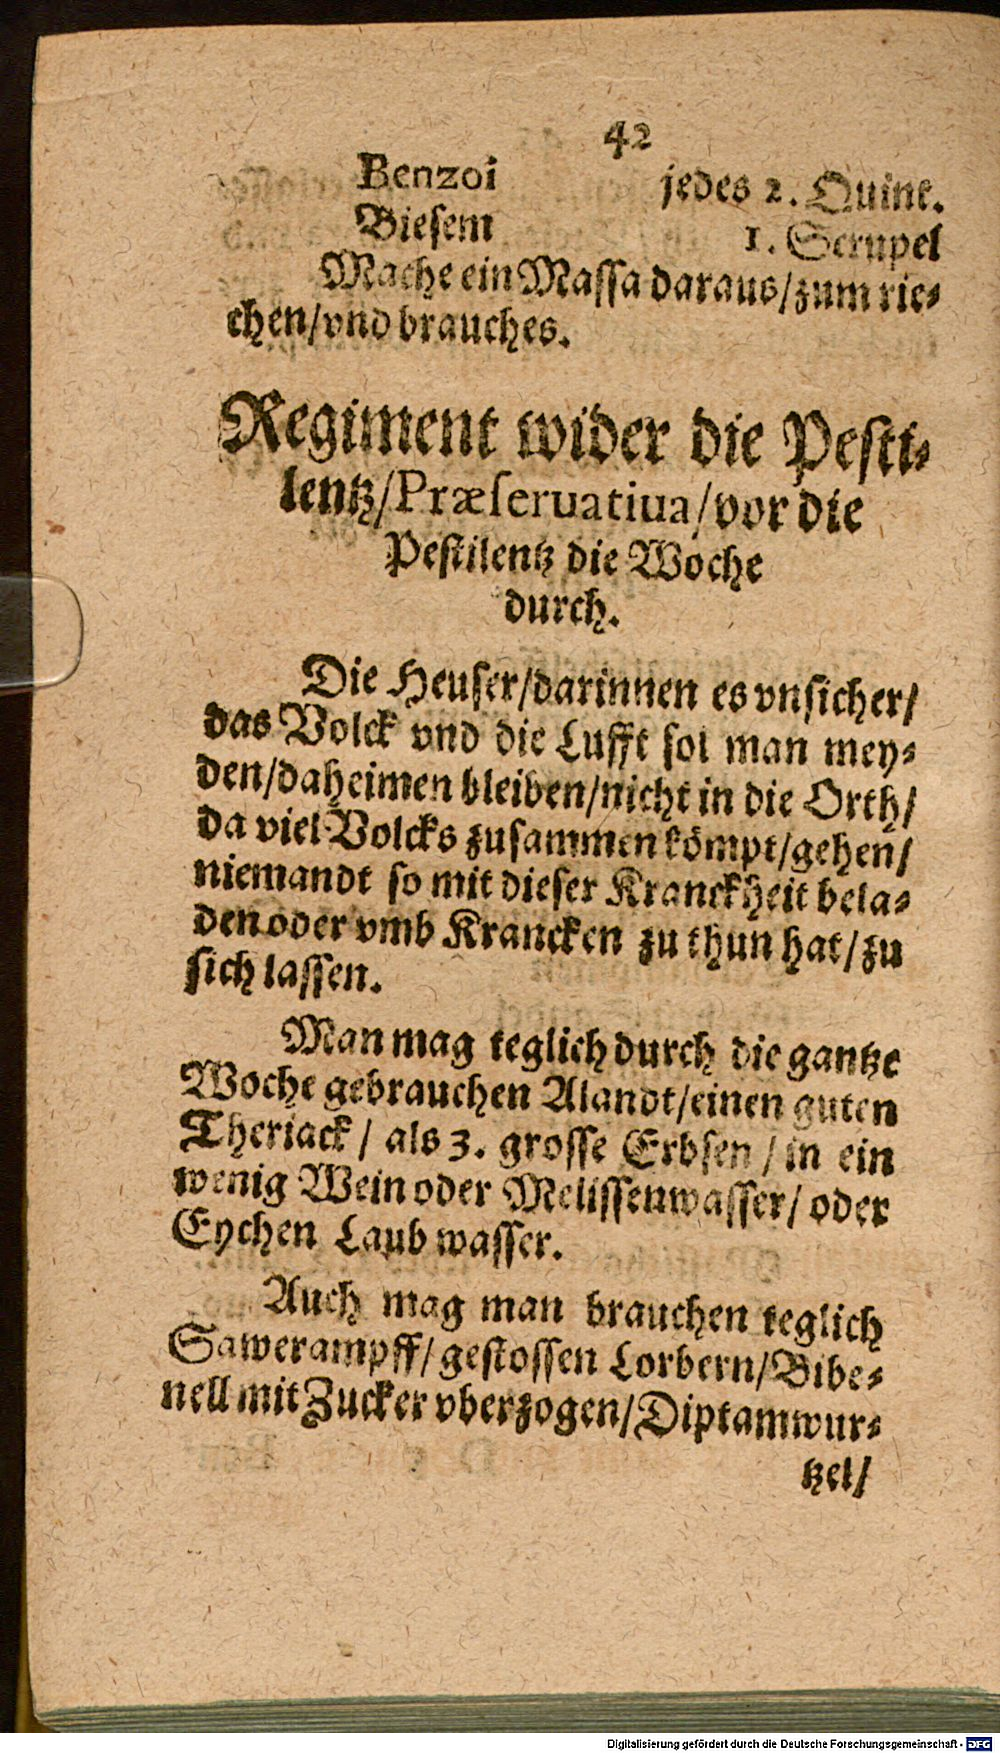 42
Benzoi jedes 2. Quint.
Biesem 1. Scrupel
Mache ein Massa daraus/zum rie-
chen/vnd brauches.
Regiment wider die Pesti-
lentz/Præseruatiua/vor die
Pestilentz die Woche
durch.
Die Heuser/darinnen es vnsicher/
das Volck vnd die Lufft sol man mey-
den/daheimen bleiben/nicht in die Orth/
da viel Volcks zusammen kömpt/gehen/
niemandt so mit dieser Kranckheit bela-
den oder vmb Krancken zu thun hat/zu
sich lassen.
Man mag teglich durch die gantze
Woche gebrauchen Alandt/einen guten
Theriack / als 3. grosse Erbsen / in ein
wenig Wein oder Melissenwasser/ oder
Eychen Laub wasser.
Auch mag man brauchen teglich
Sawerampff/gestossen Lorbern/Bibe-
nell mit Zucker vberzogen/Diptamwur-
tzel/
Digitalisierung gefördert durch die Deutsche Forschungsgemeinschaft - DFG